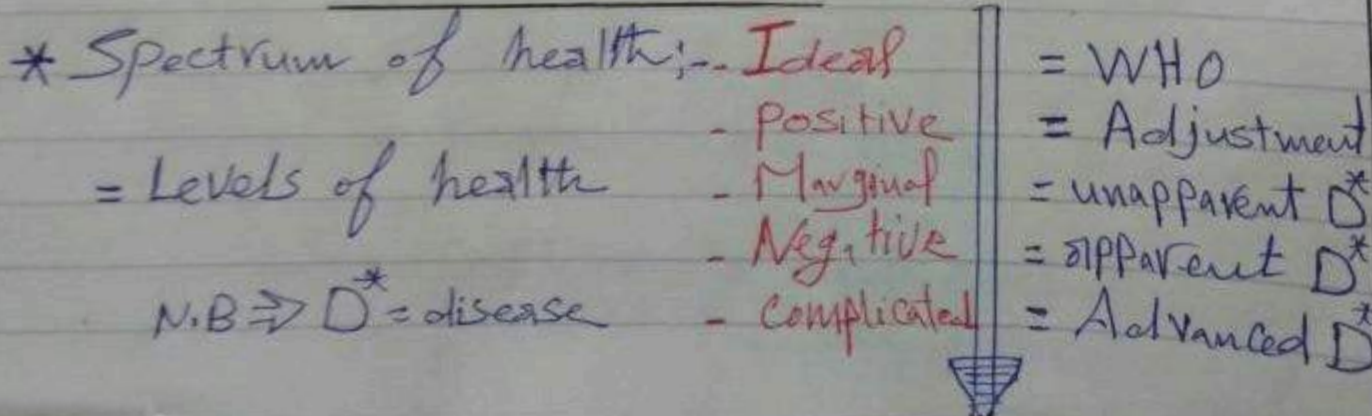 * Spectrum of health:- - Ideal = WHO
- Positive = Adjustment
= Levels of health - Marginal = unapparent D*
- Negative = apparent D*
N.B ⇒ D* = disease - Complicated = Advanced D*